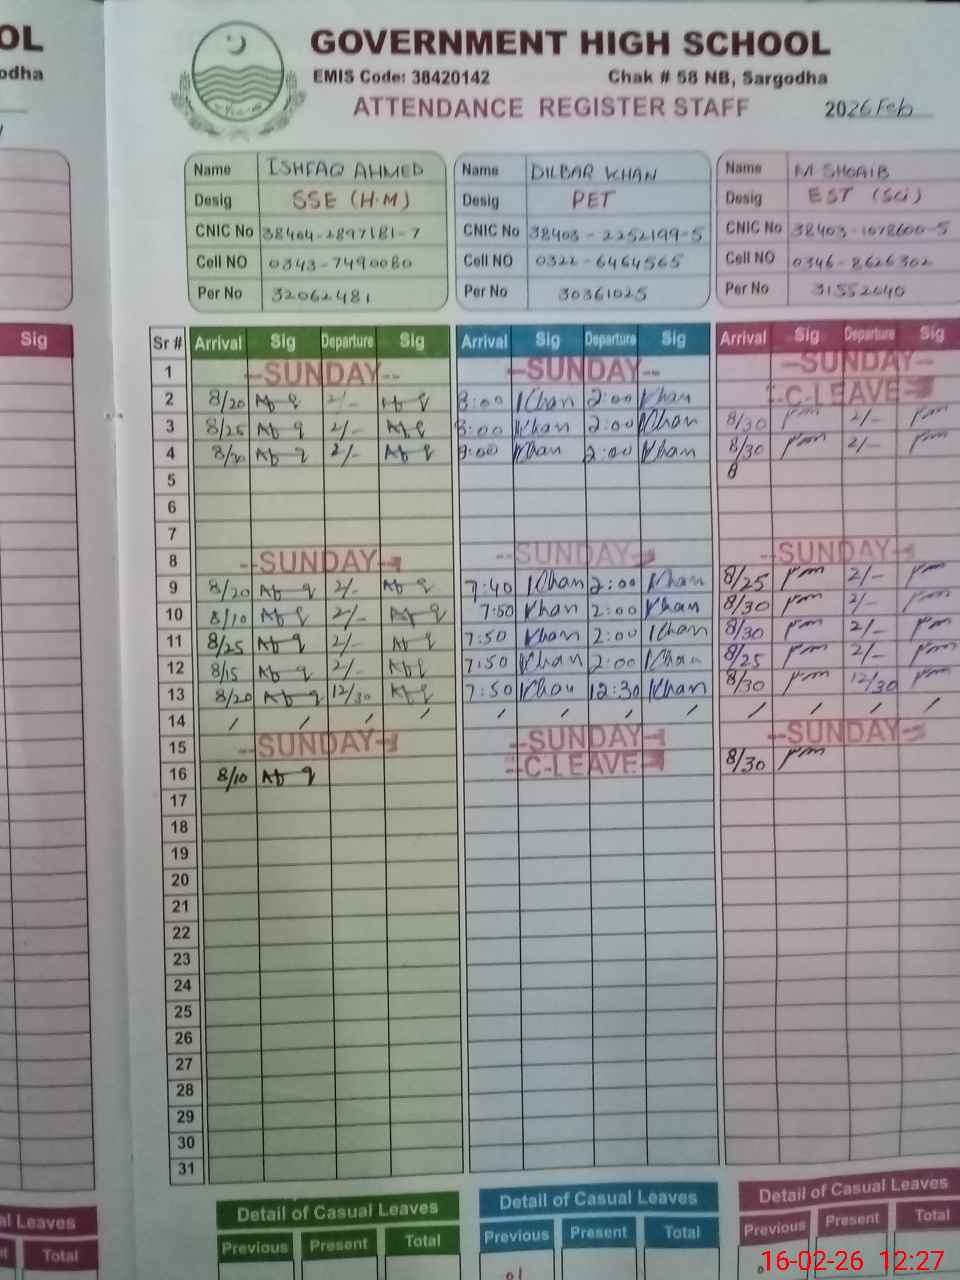 OL
GOVERNMENT HIGH SCHOOL
odha
EMIS Code: 38420142 Chak # 58 NB, Sargodha
ATTENDANCE REGISTER STAFF 2026 Feb
Name ISHFAQ AHMED Name DILBAR KHAN Name M SHOAIB
Desig SSE (H.M) Desig PET Desig EST (Sci)
CNIC No 38404-2897181-7 CNIC No 38403-2252199-5 CNIC No 38403-1078600-5
Cell NO 0343-7490080 Cell NO 0322-6464565 Cell NO 0346-8626302
Per No 32062481 Per No 30361025 Per No 31552040
Sig Sr # Arrival Sig Departure Sig Arrival Sig Departure Sig Arrival Sig Departure Sig
1 --SUNDAY-- --SUNDAY-- --SUNDAY--
2 8/20 2/- 8:00 Khan 2:00 Khan --C-LEAVE--
3 8/25 2/- 8:00 Khan 2:00 Khan 8/30 2/-
4 8/20 2/- 8:00 Khan 2:00 Khan 8/30 2/-
5 8
6
7
8 --SUNDAY-- --SUNDAY-- --SUNDAY--
9 8/20 2/- 7:40 Khan 2:00 Khan 8/25 2/-
10 8/10 2/- 7:50 Khan 2:00 Khan 8/30 2/-
11 8/25 2/- 7:50 Khan 2:00 Khan 8/30 2/-
12 8/15 2/- 7:50 Khan 2:00 Khan 8/25 2/-
13 8/20 12/30 7:50 Khan 12:30 Khan 8/30 12/30
14 / / / / / / / / / / / /
15 --SUNDAY-- --SUNDAY-- --SUNDAY--
16 8/10 --C-LEAVE-- 8/30
17
18
19
20
21
22
23
24
25
26
27
28
29
30
31
al Leaves Detail of Casual Leaves Detail of Casual Leaves Detail of Casual Leaves
Total Previous Present Total Previous Present Total Previous Present Total
01
16-02-26 12:27